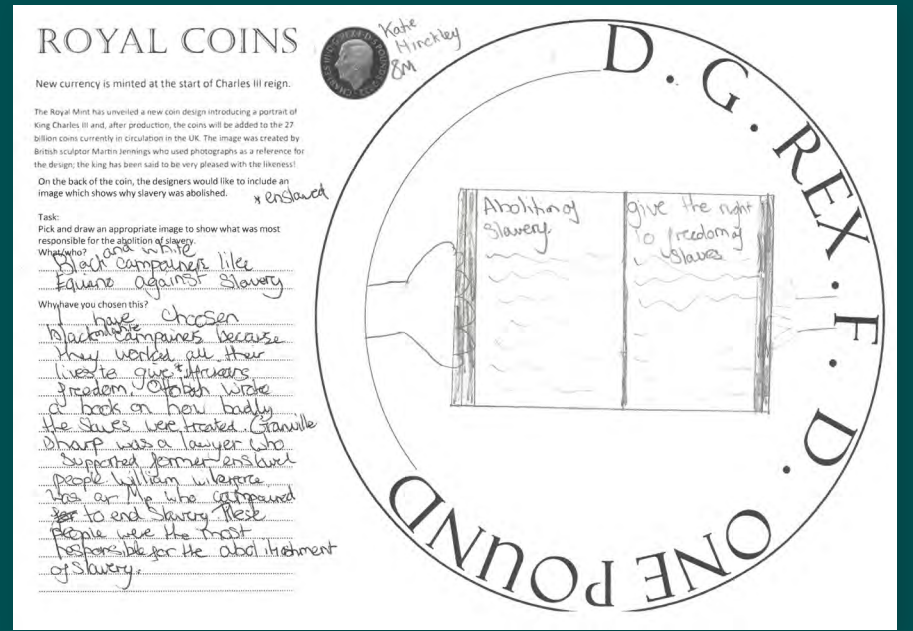 ROYAL COINS
Katie
Hinckley
8M
New currency is minted at the start of Charles III reign.
The Royal Mint has unveiled a new coin design introducing a portrait of
King Charles III and, after production, the coins will be added to the 27
billion coins currently in circulation in the UK. The image was created by
British sculptor Martin Jennings who used photographs as a reference for
the design; the king has been said to be very pleased with the likeness!
On the back of the coin, the designers would like to include an
image which shows why slavery was abolished.
* enslaved
Task:
Pick and draw an appropriate image to show what was most
responsible for the abolition of slavery.
What/who?
and white
Black campainers like
Equano against Slavery
Why have you chosen this?
I have choosen
Black and white campainers because
they worked all their
lives to give * Africans
freedom, Ottobah wrote
a book on how badly
the slaves were treated. Granville
Sharp was a lawyer who
supported former enslaved
people. William wilberforce
was an Mp who campained
to end Slavery These
people were the most
responsible for the abolitishment
of Slavery.
Abolition of
Slavery.
give the right
to freedom of
slaves
D. G. REX. F. D. ONE POUND